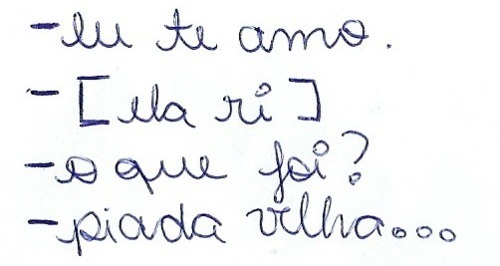 -eu te amo.
-[ela ri]
-o que foi?
-piada velha...